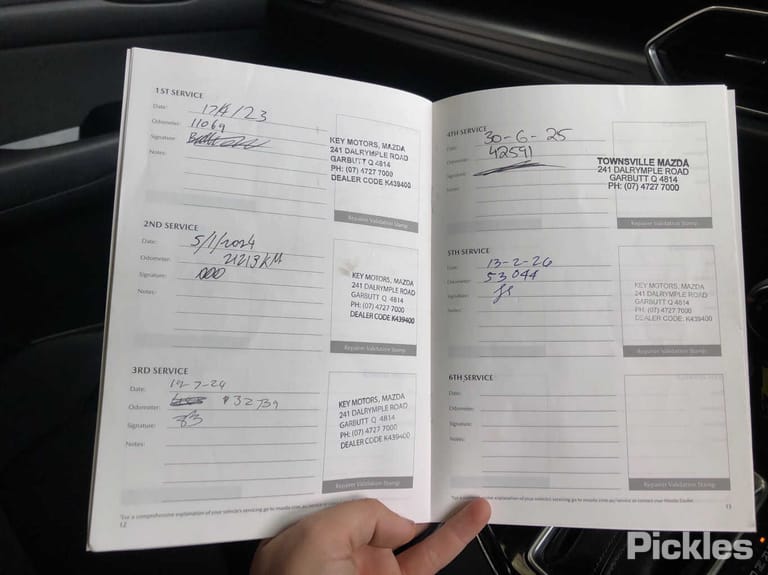 1ST SERVICE
Date: 17/4/23
Odometer: 11069
Signature:
Notes:
KEY MOTORS, MAZDA
241 DALRYMPLE ROAD
GARBUTT Q 4814
PH: (07) 4727 7000
DEALER CODE K439400
Repairer Validation Stamp
2ND SERVICE
Date: 5/1/2024
Odometer: 21213KM
Signature:
Notes:
KEY MOTORS, MAZDA
241 DALRYMPLE ROAD
GARBUTT Q 4814
PH: (07) 4727 7000
DEALER CODE K439400
Repairer Validation Stamp
3RD SERVICE
Date: 12-7-24
Odometer: 32739
Signature:
Notes:
KEY MOTORS, MAZDA
241 DALRYMPLE ROAD
GARBUTT Q 4814
PH: (07) 4727 7000
DEALER CODE K439400
Repairer Validation Stamp
*For a comprehensive explanation of your vehicle's servicing go to mazda.com.au/service or contact your Mazda Dealer.
12
4TH SERVICE
Date: 30-6-25
Odometer: 42591
Signature:
Notes:
TOWNSVILLE MAZDA
241 DALRYMPLE ROAD
GARBUTT Q 4814
PH: (07) 4727 7000
Repairer Validation Stamp
5TH SERVICE
Date: 13-2-26
Odometer: 53044
Signature:
Notes:
KEY MOTORS, MAZDA
241 DALRYMPLE ROAD
GARBUTT Q 4814
PH: (07) 4727 7000
DEALER CODE: K439400
Repairer Validation Stamp
6TH SERVICE
Date:
Odometer:
Signature:
Notes:
Repairer Validation Stamp
*For a comprehensive explanation of your vehicle's servicing go to mazda.com.au/service or contact your Mazda Dealer.
13
Pickles